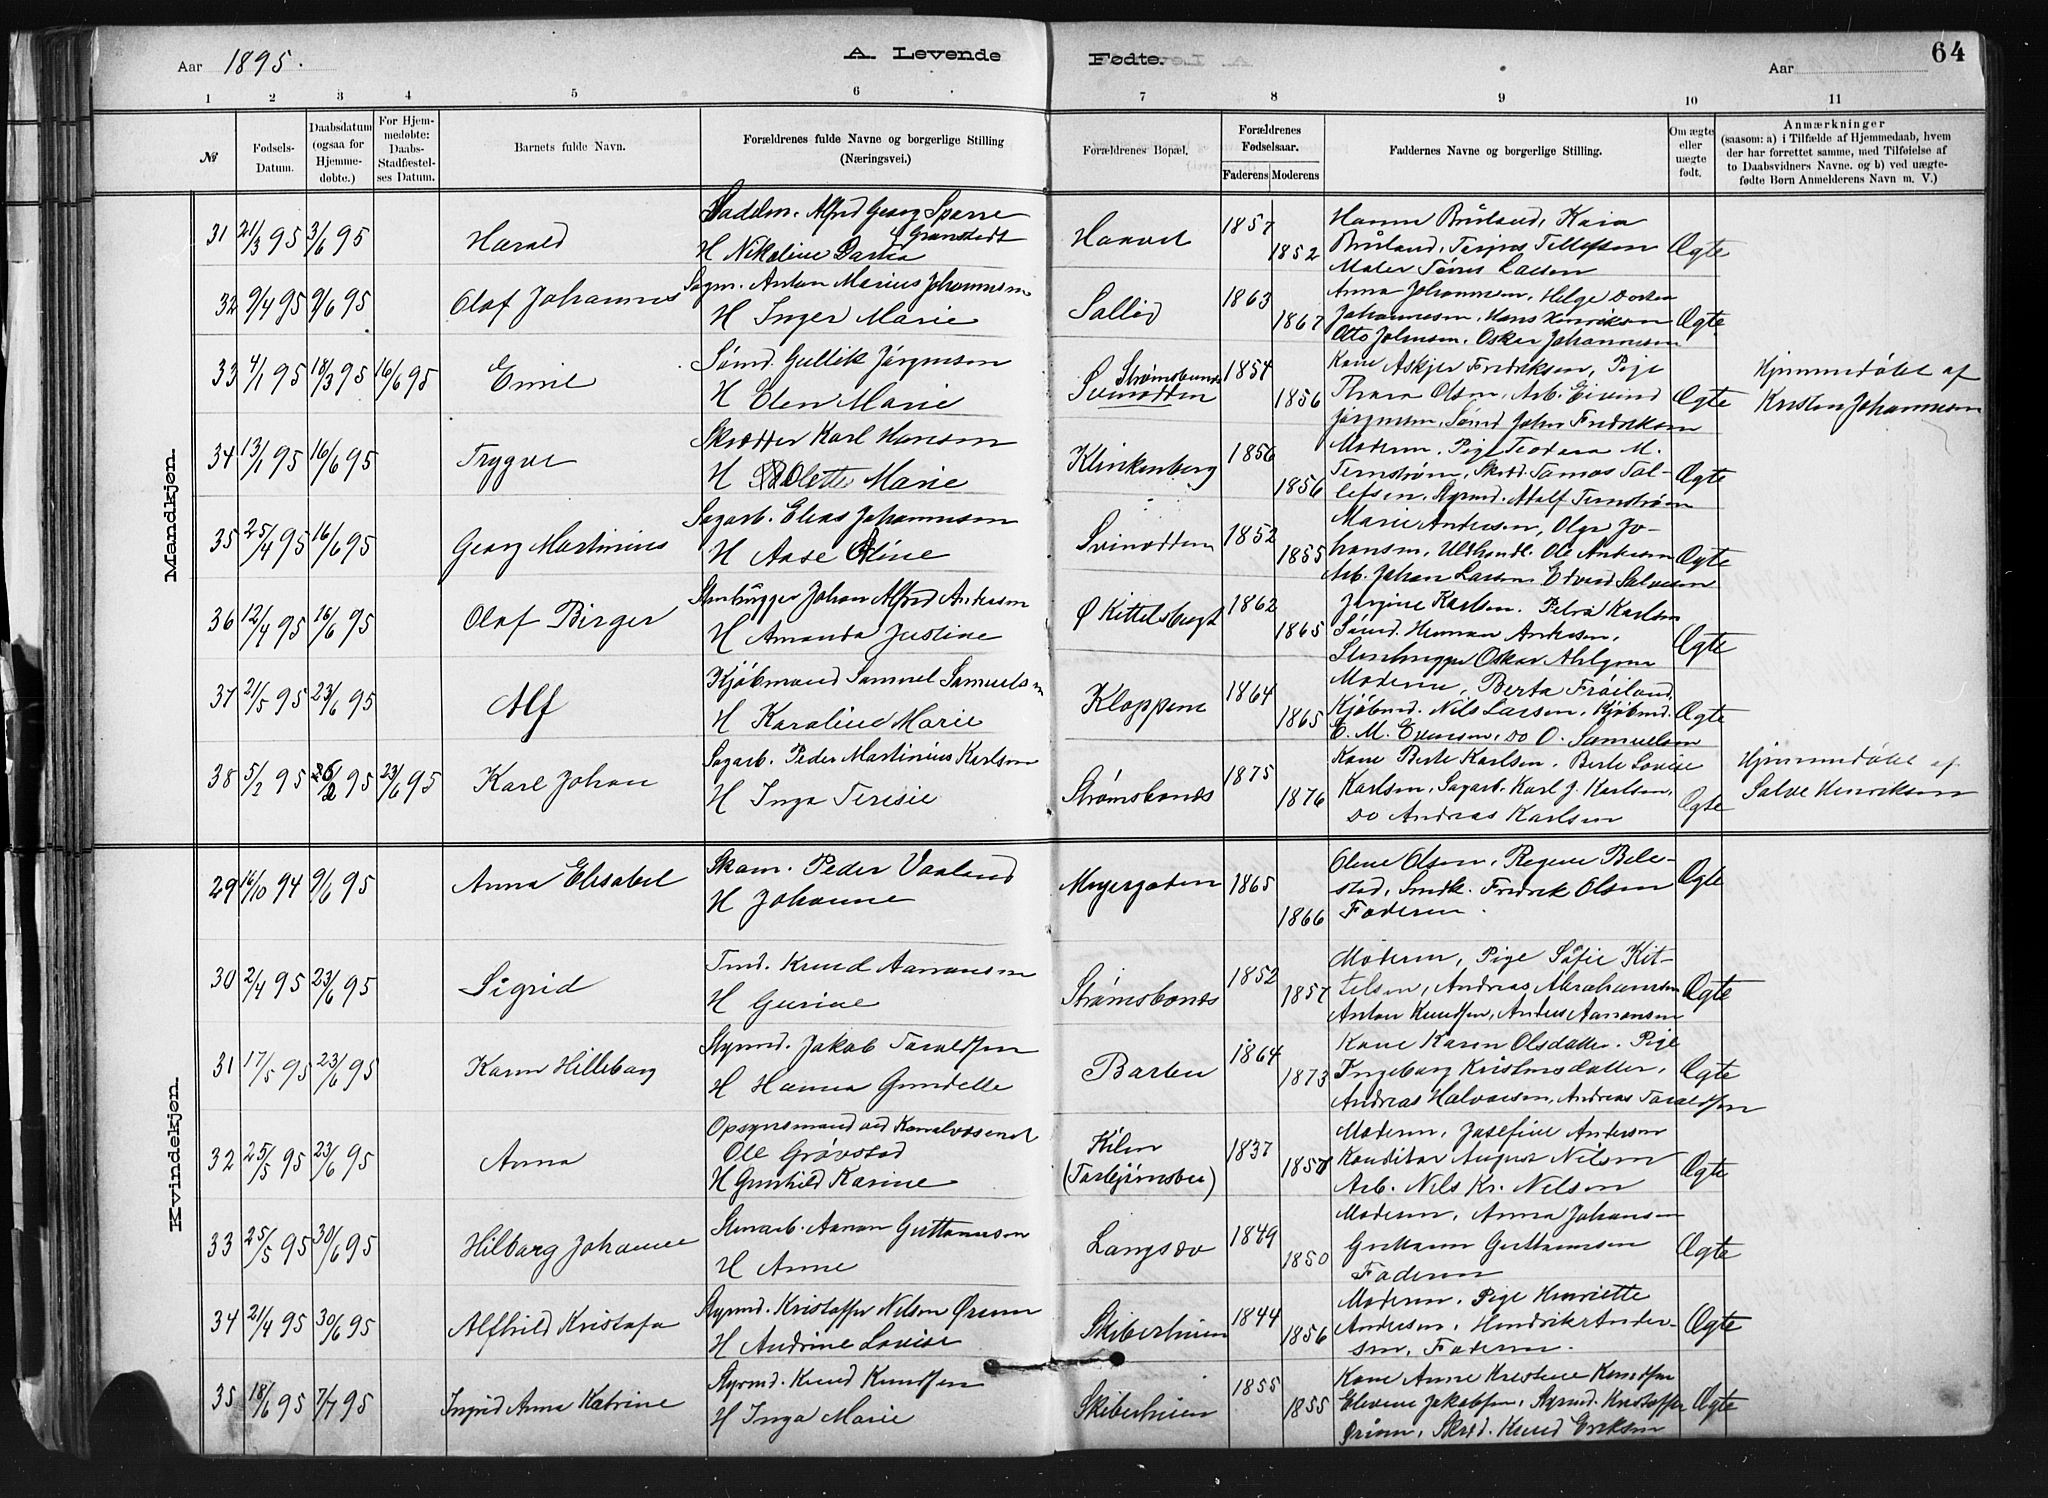 Aar 1895.
A. Levende
Fødte.
Aar
64
1 2 3 4 5 6 7 8 9 10 11
№
Fødsels-
Datum.
Daabsdatum
(ogsaa for
Hjemme-
døbte.)
For Hjem-
medøbte:
Daabs-
Stadfæstel-
ses Datum.
Barnets fulde Navn.
Forældrenes fulde Navne og borgerlige Stilling
(Næringsvei.)
Forældrenes Bopæl.
Forældrenes
Fødselsaar.
Faderens Moderens
Faddernes Navne og borgerlige Stilling.
Om ægte
eller
uægte
født.
Anmærkninger
(saasom: a) i Tilfælde af Hjemmedaab, hvem
der har forrettet samme, med Tilføielse af
to Daabsvidners Navne, og b) ved uægte-
fødte Børn Anmelderens Navn m. V.)
Mandkjøn.
31 21/3 95 3/6 95 Harald
Sadelm. Alfred Georg Sparre
Granstedt
H Nikoline Dartea
1857
1852
Kaia
Terjus Tellefsen
Maler Tønes Larsen
Ægte
32 9/4 95 9/6 95 Olaf Johannes
Sagm. Anton Marius Johannesen
H Inger Marie
Sollid
1863
1867
Anna Johannesen, Helge Dortea
Johannesen, Hans Henriksen
Otto Johnsen, Oskar Johannesen
Ægte
33 4/1 95 18/3 95 16/6 95 Emil
Sømd. Gullik Jørgensen
H Elen Marie
Strømsbunds
Svinodden
1854
1856
Kone Askjer Fredriksen, Pige
Thara Olsen, Arb. Eivind
Jørgensen, Sømd John Fredriksen
Ægte
Hjemmedøbt af
Kristen Johannesen
34 13/1 95 16/6 95 Trygve
Skrædder Karl Hansen
H Olette Marie
Klinkenberg
1856
1856
Moderen, Pige Teodora M.
Ternstrøm, Skræd. Tomas Tal-
lefsen, Styrmd. Adolf Ternstrøm
Ægte
35 25/4 95 16/6 95 Georg Martinius
Sagarb. Elias Johannesen
H Aase Oline
Svinodden
1852
1855
Marie Andersen, Olga Jo-
hansen, Uldhandl. Ole Andersen
Arb. Johan Larsen, Edvard Salvesen
Ægte
36 12/4 95 16/6 95 Olaf Birger
Stenhugger Johan Alfred Andersen
H Amanda Justine
Ø Kittelsbugt
1862
1865
Jørgine Karlsen, Petra Karlsen
Sømd. Herman Andersen,
Stenhugger Oskar Ahlgren
Ægte
37 21/5 95 23/6 95 Alf
Kjøbmand Samuel Samuelsen
H Karoline Marie
Kloppene
1864
1865
Moderen, Berta Frøiland,
Kjøbmd. Nils Larsen, Kjøbmd.
E. M. Evensen, do O. Samuelsen
Ægte
38 5/2 95 95 23/6 95 Karl Johan
Sagarb. Peder Martinius Karlsen
H Inga Teresie
Strømsbonæs
1875
1876
Kone Berte Karlsen, Berte Lovise
Karlsen, Sagarb. Karl J. Karlsen,
do Andreas Karlsen
Ægte
Hjemmedøbt af
Salve Henriksen
Kvindekjøn.
29 16/10 94 9/6 95 Anna Elisabet
Skom. Peder Vaaland
H Johanne
Meyergaden
1865
1866
Olene Olsen, Regine Bele-
stad, Smdk. Fredrik Olsen
Faderen.
Ægte
30 2/4 95 23/6 95 Sigrid
Tmd. Knud Aanonsen
H Gurine
Strømsbonæs
1852
1857
Moderen, Pige Sofie Kit-
telsen, Andreas Abrahamsen
Anton Knudsen, Anders Aanonsen
Ægte
31 17/5 95 23/6 95 Karen Hilleborg
Styrmd. Jakob Taraldsen
H Hanna Gundelle
Barbu
1864
1873
Kone Karen Olsdatter, Pige
Ingeborg Kristensdatter,
Andreas Halvorsen, Andreas Taraldsen
Ægte
32 25/5 95 23/6 95 Anna
Opsynsmand ved Kanalvæsenet
Ole Grøvstad
H Gunhild Karine
Kilen
1837
1857
Moderen, Josefine Andersen
Konditor August Nilsen
Arb. Nils Kr. Nilsen
Ægte
33 25/5 95 30/6 95 Hilborg Johanne
Stenarb. Aanon Guttormsen
H Anne
Langsæv
1849
1850
Moderen, Anna Johansen
Guttorm Guttormsen
Faderen
Ægte
34 21/4 95 30/6 95 Alfhild Kristofa
Styrmd. Kristoffer Nilsen Ørnen
H Andrine Lovise
Skiberheien
1844
1856
Moderen, Pige Henriette
Andersen, Hendrik Ander-
sen, Faderen.
Ægte
35 18/6 95 7/7 95 Ingrid Anna Katrine
Styrmd. Knud Knudsen
H Inga Marie
Skiberheien
1855
1855
Kone Anne Kristine Knudsen
Elevine Jakobsen, Styrmd. Kristoffer
Skræd. Knud Eriksen
Ægte